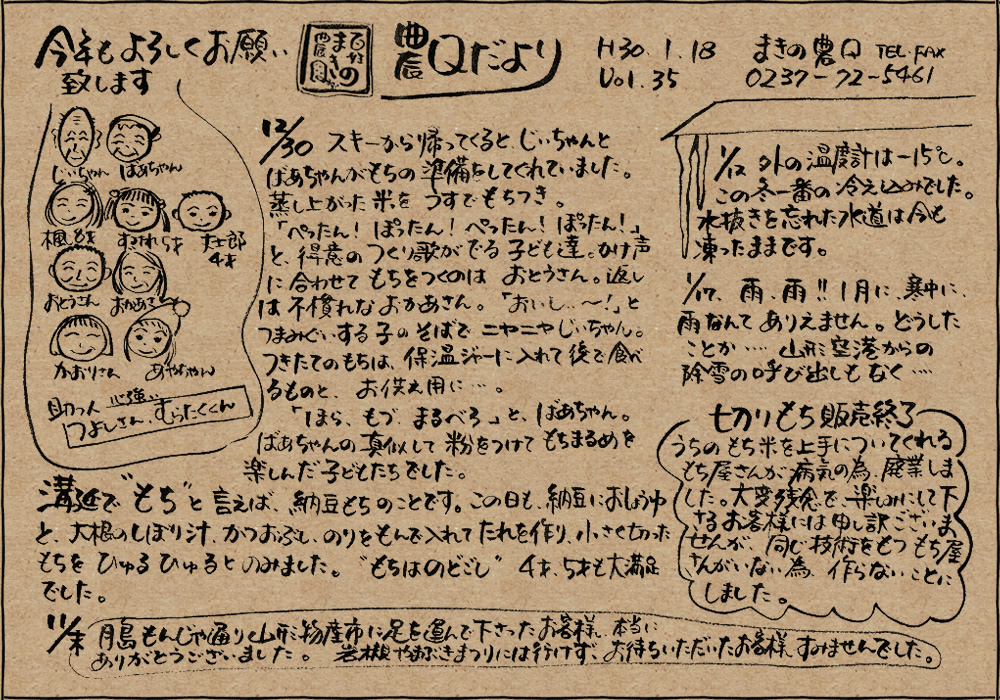 今年もよろしくお願い
致します
百姓
まきの
農園
農Qだより
H30.1.18
Vol.35
まきの農Q TEL・FAX
0237-72-5461
じいちゃん ばあちゃん
楓 すみれ5才
4才
おとうさん おかあさん
かおりさん あやちゃん
助っ人 心強い
つよしさん、むらたくくん
12/30 スキーから帰ってくると、じいちゃんと
ばあちゃんがもちの準備をしてくれていました。
蒸し上がった米を うすでもちつき。
「ぺったん! ぽったん! ぺったん! ぽったん!」
と、得意の つくり歌がでる 子ども達。かけ声
に合わせて もちをつくのは おとうさん。返し
は 不慣れな おかあさん。「おいし…〜!」と
つまみぐいする子のそばで ニヤニヤじいちゃん。
つきたてのもちは、保温ジャーに入れて 後で食べ
るものと、 お供え用に…。
「ほら、もづ まるべろ」と、ばあちゃん。
ばあちゃんの真似して 粉をつけて もちまるめを
楽しんだ子どもたちでした。
溝延で“もち”と言えば、納豆もちのことです。この日も、納豆におしょうゆ
と、大根のしぼり汁、かつおぶし、のりをもんで入れて たれを作り、小さくちぎった
もちを ひゅるひゅるとのみました。“もちはのどごし” 4才、5才も大満足
でした。
1/12 外の温度計は-15℃。
この冬一番の冷え込みでした。
水抜きを忘れた水道は今も
凍ったままです。
1/17、雨、雨!! 1月に、寒中に、
雨なんて ありえません。どうした
ことか… 山形空港からの
除雪の呼び出しもなく…
切りもち販売終了
うちのもち米を上手についてくれる
もち屋さんが病気の為、廃業しま
した。大変残念で、楽しみにして下
さるお客様には申し訳ございま
せんが、同じ技術をもつもち屋
さんがいない為、作らないことに
しました。
11/末 月島もんじゃ通りで山形物産市に足を運んで下さったお客様、本当に
ありがとうございました。 岩槻やまぶきまつりには行けず、お待ちいただいたお客様、すみませんでした。